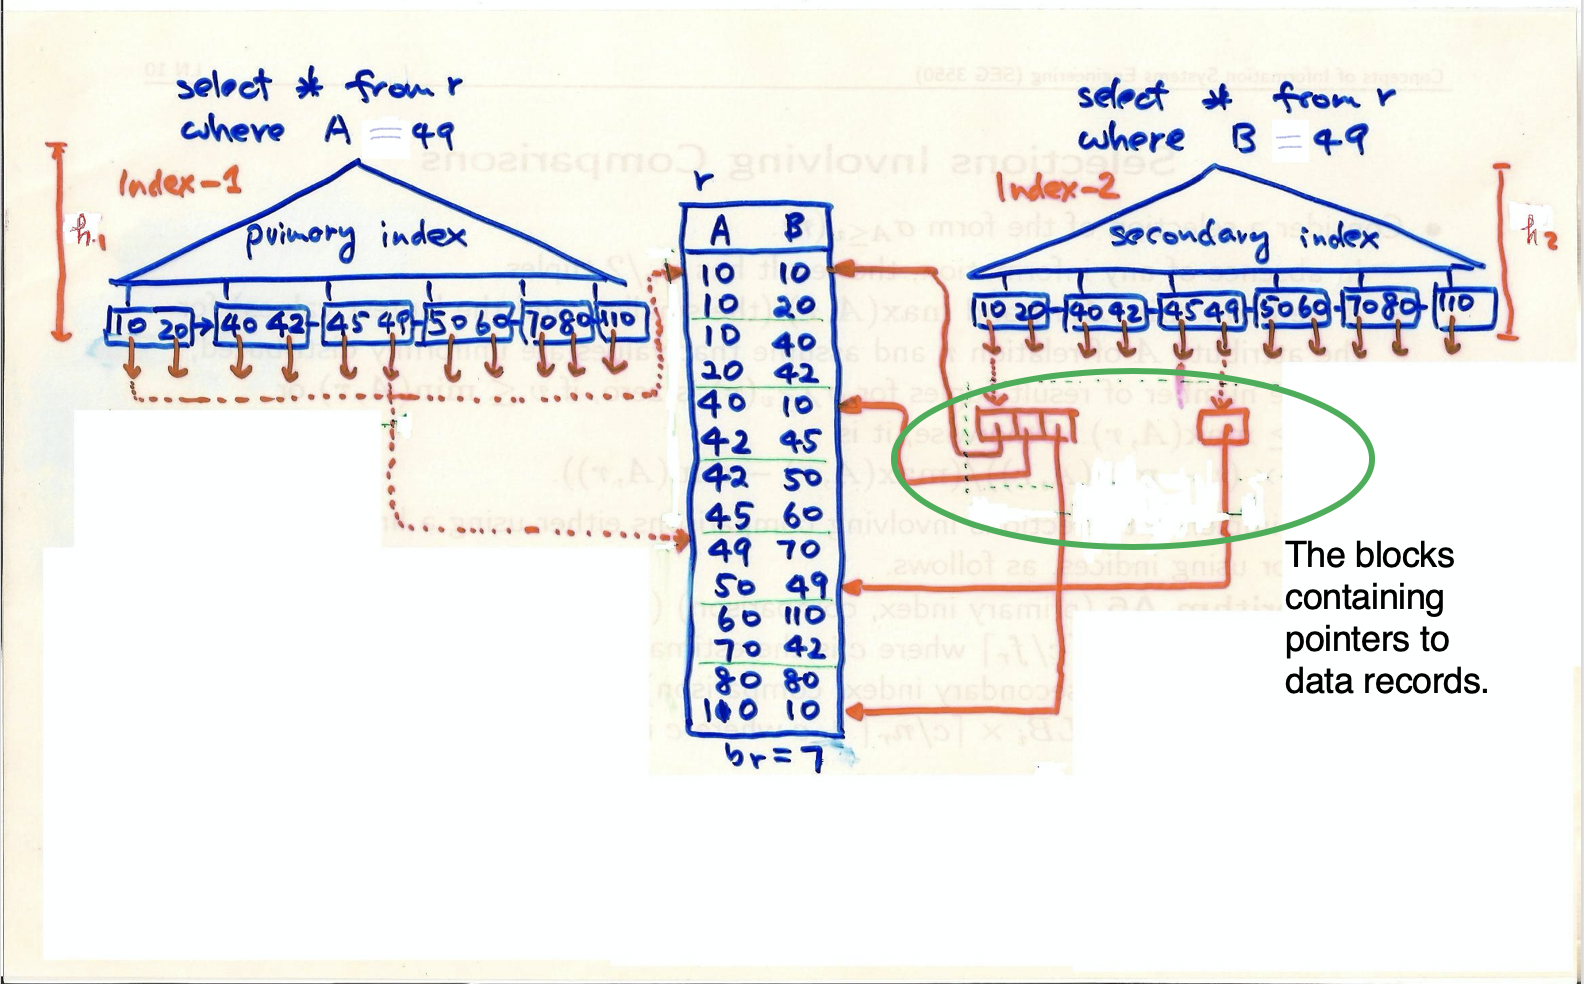 select * from r
where A = 49
Index-1
h1
primary index
10 20 40 42 45 49 50 60 70 80 110
select * from r
where B = 49
Index-2
h2
secondary index
10 20 40 42 45 49 50 60 70 80 110
r
A B
10 10
10 20
10 40
20 42
40 10
42 45
42 50
45 60
49 70
50 49
60 110
70 42
80 80
110 10
br = 7
The blocks
containing
pointers to
data records.
Concepts of Information Systems Engineering (SEG 3550)
LN 10
Selections Involving Comparisons